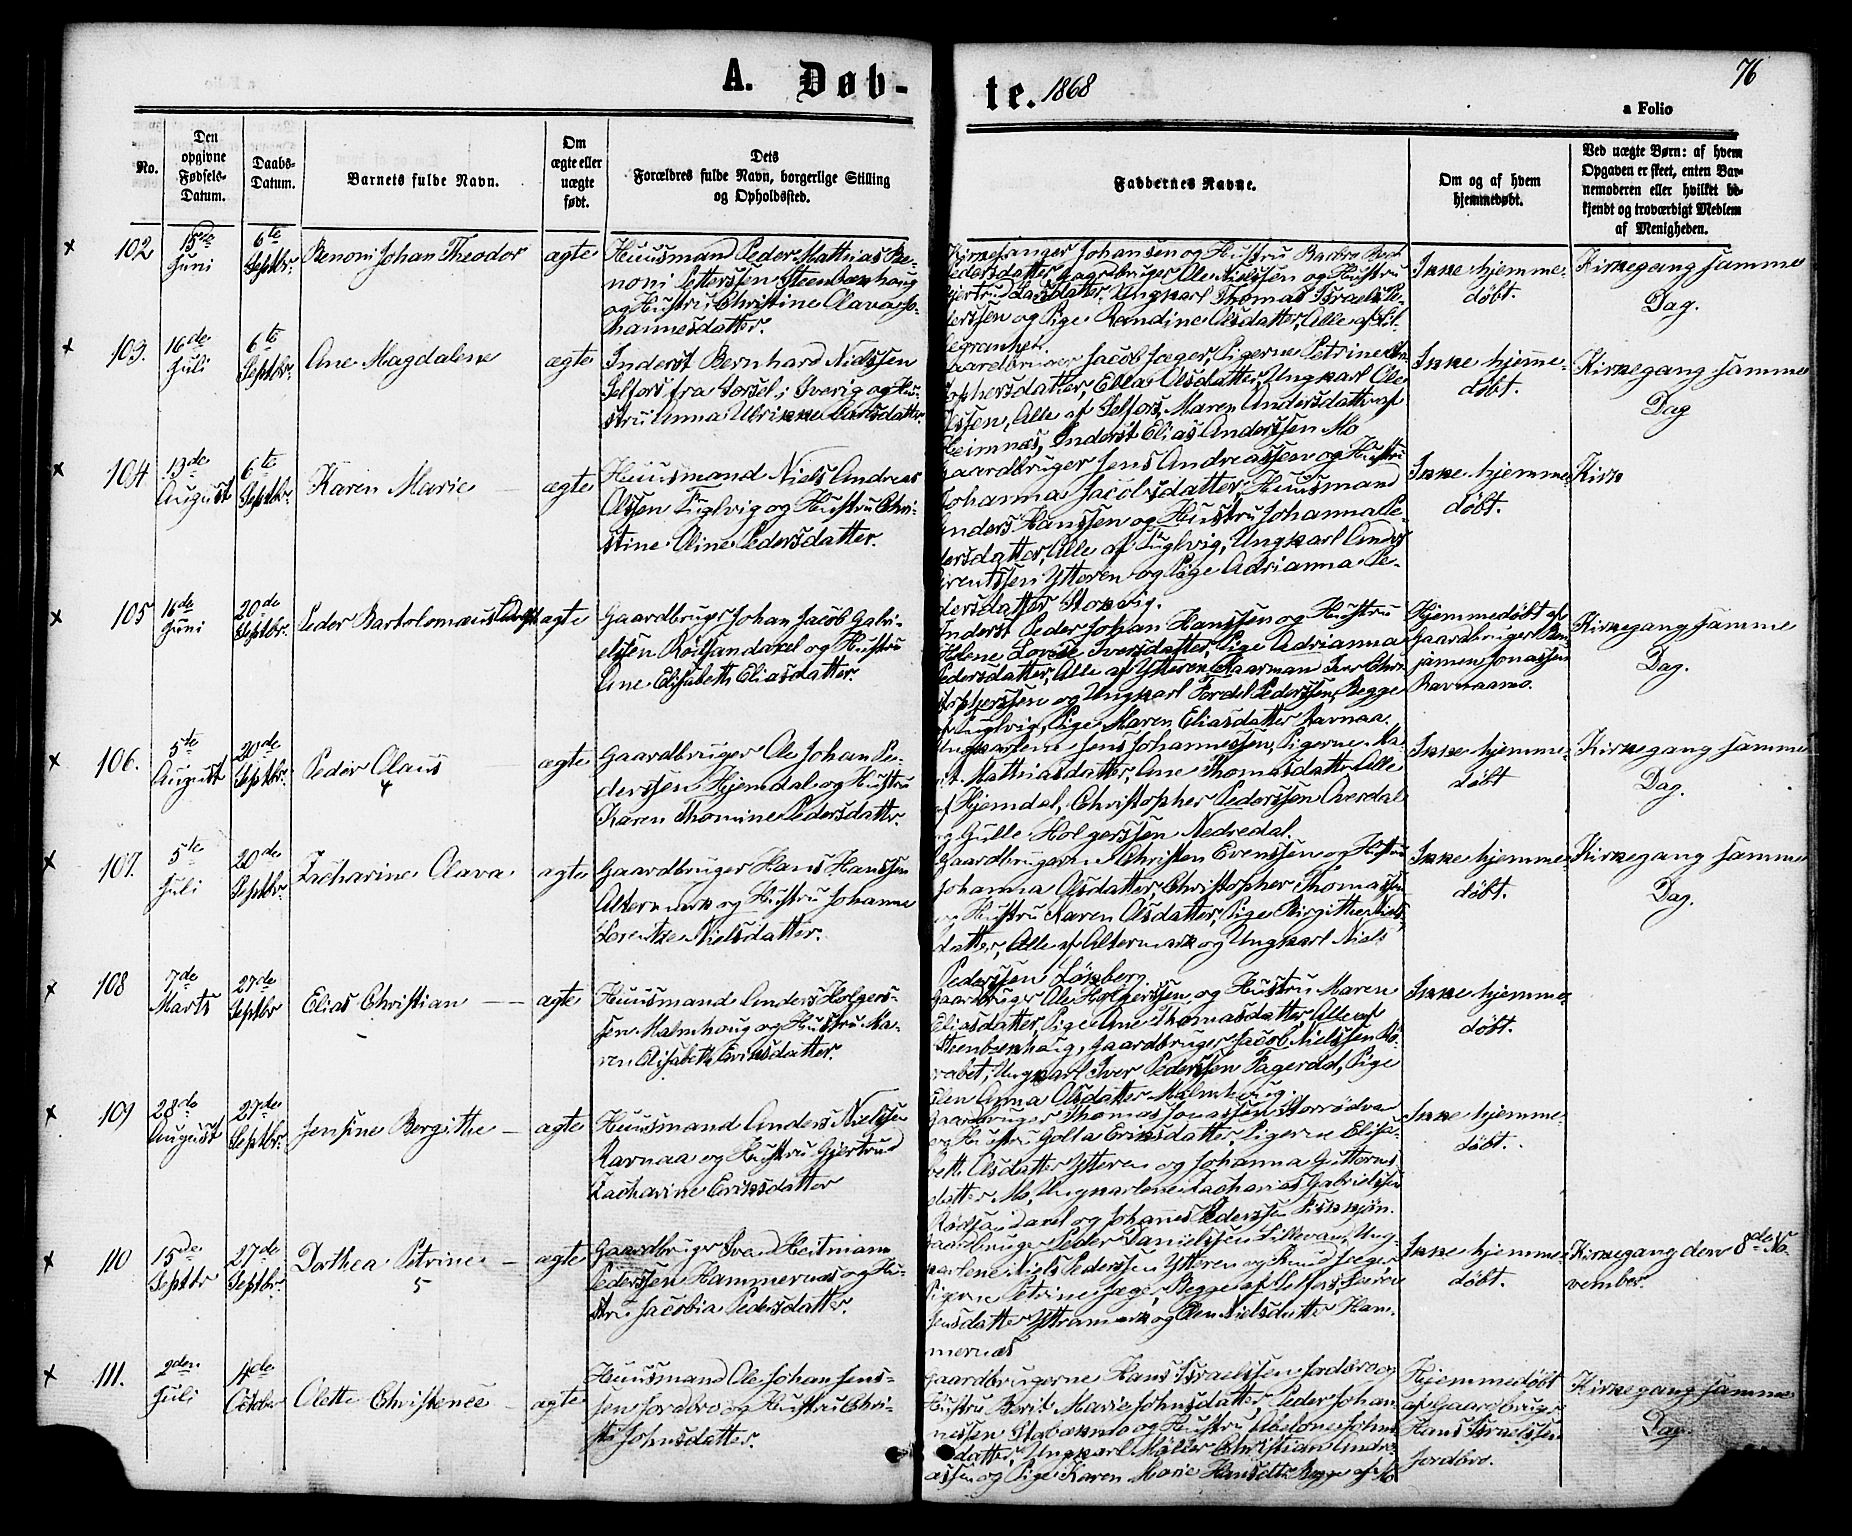 A. Døb-
te. 1868
76
a Folio
No.
Den
opgivne
Fødsels-
Datum.
Daabs-
Datum.
Barnets fulde Navn.
Om
ægte eller
uægte
født.
Dets
Forældres fulde Navn, borgerlige Stilling
og Opholdssted.
Faddernes Navne.
Om og af hvem
hjemmedøbt.
Ved uægte Børn: af hvem
Opgaven er skeet, enten Bar-
nemoderen eller hvilket be-
kjendt og troværdigt Medlem
af Menigheden.
102
15de
Juni
6te
Septbr.
Benoni Johan Theodor
ægte
Huusmand Peder Mathias Be-
noni Pettersen Steenbækhaug
og Hustru Christine Olava Jo-
hannesdatter.
Johansen og Hustru Barbro
Pedersdatter, Gaardbruger Ole Nielssen og Hustru
Larsdatter, Ungkarl Thomas Israel Pe-
derssen og Pige Randine Olsdatter, Alle af
Ikke hjemme-
døbt.
Kirkegang samme
Dag.
103.
16de
Juli
6te
Septbr.
Ane Magdalene
ægte
Inderst Bernhard Nielssen
Selfors fra Sorsel i Sverig og Hu-
stru Anna Ulrikke Larsdatter.
Gaardbruger Jacob Jæger, Pigerne Petrine
Ebba Olsdatter, Ungkarl Ole
Olssen, Alle af Selfors, Maren Andersdatter af
Heimnæs, Inderst Elias Anderssen Mo
Ikke hjemme-
døbt.
Kirkegang samme
Dag
104
13de
August
6te
Septbr.
Karen Marie
ægte
Huusmand Niels Andreas
Olssen Fuglvig og Hustru Chri-
stine Oline Pedersdatter.
Gaardbruger Jens Andreassen og Hustru
Johanna Jacobsdatter, Huusmand
Anders Hanssen og Hustru Johanna Pe-
dersdatter, Alle af Fuglvig, Ungkarl
Ytteren og Pige Adrianna Pe-
dersdatter Storvig.
Ikke hjemme-
døbt.
Kirk
105
16de
Juni
20de
Septbr.
Peder Bartolomæus
ægte
Gaardbruger Johan Jacob Gabri-
elssen Rødsandaxel og Hustru
Elisabeth Eliasdatter.
Inderst Peder Johan Hanssen og Hustru
Helene Lovise Iversdatter, Pige Adrianna
Pedersdatter, Alle af Ytteren,
og Ungkarl Pederssen, Begge
af Fuglvig, Pige Maren Eliasdatter Ravnaa.
Hjemmedøbt af
Gaardbruger Ben-
jamen Jonassen
Ravnaamo.
Kirkegang samme
Dag.
106.
5te
August
20de
Septbr.
Peder Olaus
4
ægte
Gaardbruger Ole Johan Pe-
derssen Hjemdal og Hustru
Karen Thomine Pedersdatter.
Ungkarlene Jens Johannessen, Pigerne Ma-
Mathiasdatter, Ane Thomasdatter Alle
af Hjemdal, Christopher Pederssen Overdal
og Gulle Holgerssen Nedredal.
Ikke hjemme-
døbt
Kirkegang samme
Dag.
107.
5te
Juli
20de
Septbr.
Zacharine Olava
ægte
Gaardbruger Hans Hanssen
Altermark og Hustru Johanne
Lorentze Nielsdatter.
Gaardbrugerne Christen Evenssen og Hustru
Johanna Olsdatter, Christopher Thomassen
og Hustru Karen Olsdatter, Pige Birgithe Niels-
datter, Alle af Altermark og Ungkarl Niels
Pederssen Løkberg.
Ikke hjemme-
døbt.
Kirkegang samme
Dag.
108
7de
Marts
27de
Septbr
Elias Christian
ægte
Huusmand Anders Holgers-
sen Malmhaug og Hustru Ma-
ren Elisabeth Eriksdatter.
Gaardbruger Ole Holgerssen og Hustru Maren
Eliasdatter, Pige Ane Thomasdatter Alle af
Steenbækhaug, Gaardbruger Jacob Nielssen
Ungkarl Iver Pederssen Fagerdal, Pige
Anna Olsdatter Malmhaug.
Ikke hjemme-
døbt.
109
28de
August
27de
Septbr.
Jensine Bergithe
ægte
Huusmand Anders Nielssen
Ravnaa og Hustru Gjertrud
Zacharine Eriksdatter
Gaardbruger Thomas Jonassen
og Hustru Golla Eriksdatter, Pigerne Elisa-
beth Olsdatter Ytteren og Johanna Guttorms-
datter Mo, Ungkarlene Zacharias Gabrielssen
Rødsandaxel og Johanes Pederssen
Ikke hjemme-
døbt.
110
15de
Septbr
27de
Septbr.
Dorthea Petrine
5
ægte
Gaardbruger Svend Heitmann
Pederssen Hammernæs og Hu-
stru Jacobia Pedersdatter.
Gaardbruger Peder Danielssen Ung-
karlene Niels Pederssen Ytteren og Knud Jæger,
Pigerne Petrine Jæger, Begge af Selfors,
og Nielsdatter Ham-
mernæs
Ikke hjemme-
døbt.
Kirkegang den 8de No-
vember.
111.
2den
Juli
4de
October
Olette Christence
ægte
Huusmand Ole Johan Jens-
sen Jordbro og Hustru Chri-
Johnsdatter.
Gaardbrugerne Hans Israelssen Jordbro og
Hustru Berit Marie Johnsdatter, Peder Johan-
nessen og Hustru
datter, Ungkarl Møller Christian Andre-
assen og Pige Karen Marie Begge af
Hjemmedøbt
af Gaardbruger
Hans Israelssen
Jordbro.
Kirkegang samme
Dag.